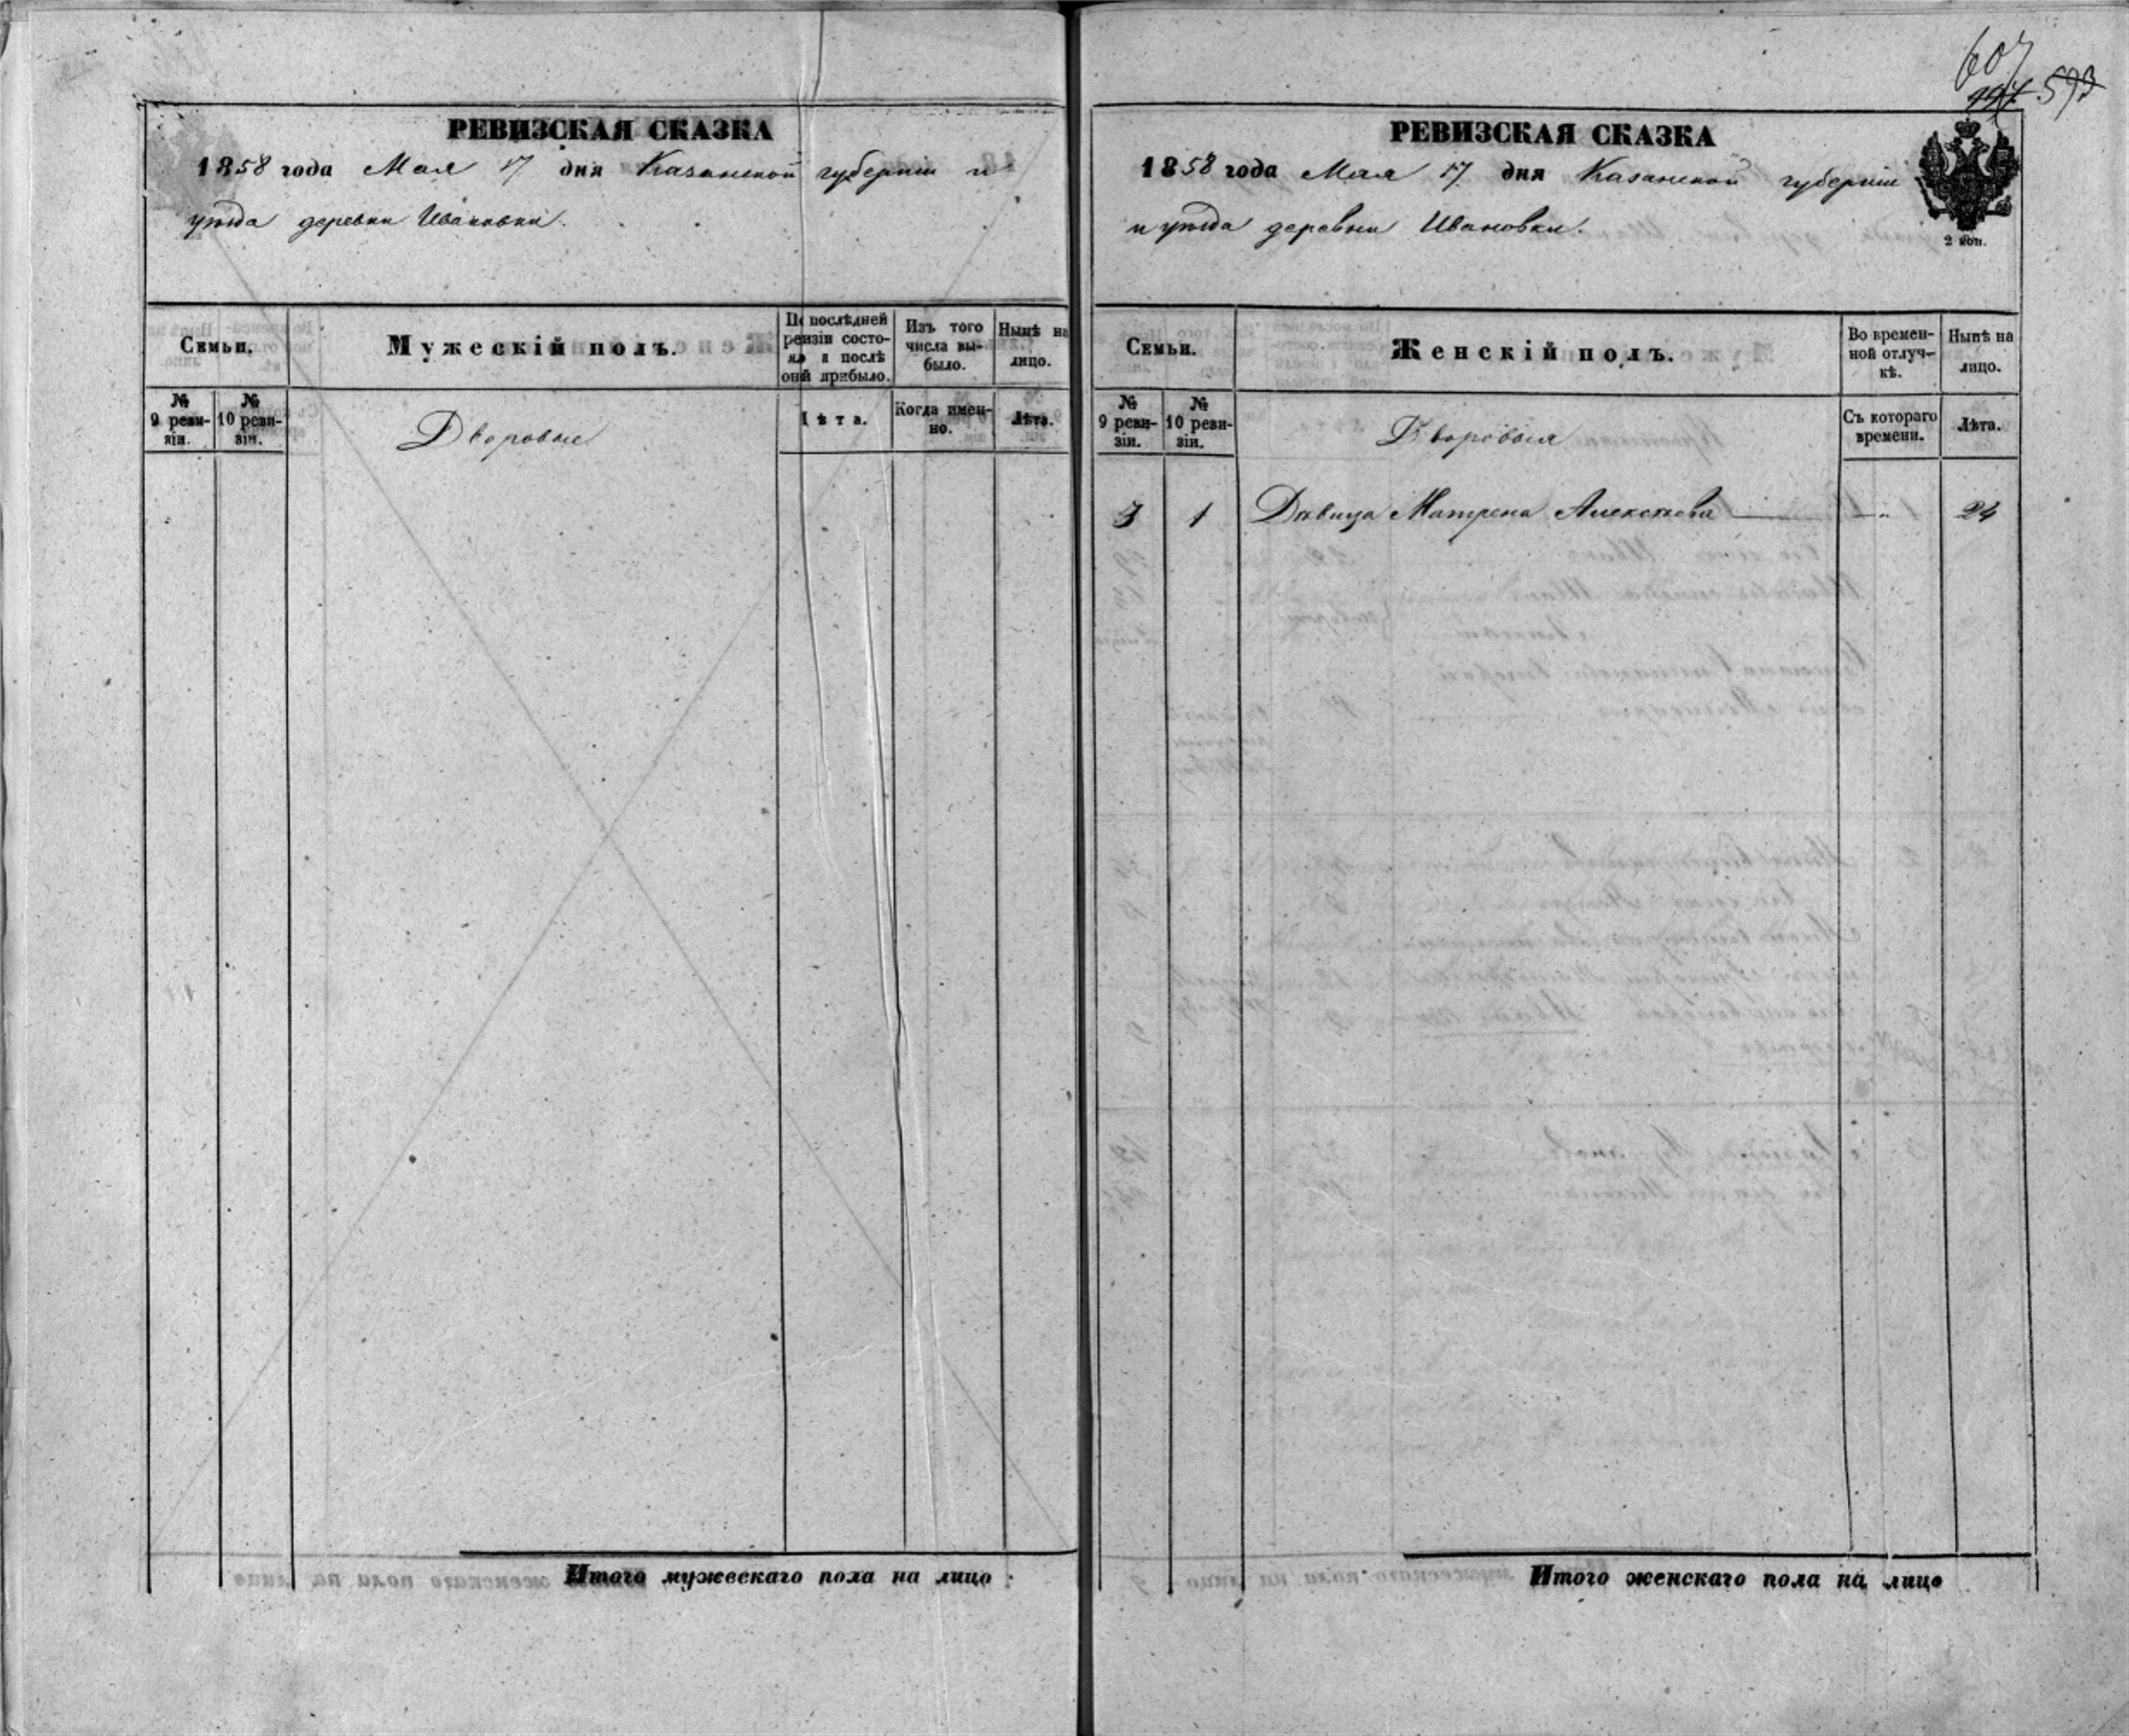 607
593
РЕВИЗСКАЯ СКАЗКА
1858 года Мая 17 дня Казанской губерніи и
уѣзда деревни Ивановки.
Семьи.
Мужескій полъ.
По послѣдней ревизіи состояло и послѣ оной прибыло.
Изъ того числа выбыло.
Нынѣ на лицо.
№ 9 ревизіи.
№ 10 ревизіи.
Дворовые
Лѣта.
Когда именно.
Лѣта.
Итого мужескаго пола на лицо
РЕВИЗСКАЯ СКАЗКА
1858 года Мая 17 дня Казанской губерніи
и уѣзда деревни Ивановки.
2 коп.
Семьи.
Женскій полъ.
Во временной отлучкѣ.
Нынѣ на лицо.
№ 9 ревизіи.
№ 10 ревизіи.
Дворовыя
Съ котораго времени.
Лѣта.
3 1 Дѣвица Матрена Алексѣева — " 24
Итого женскаго пола на лицо